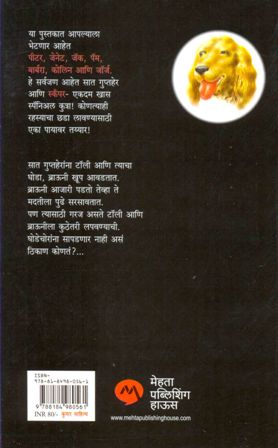 या पुस्तकात आपल्याला
भेटणार आहेत
पीटर, जेनेट, जॅक, पॅम,
बार्बरा, कोलिन आणि जॉर्ज.
हे सर्वजण आहेत सात गुप्तहेर
आणि स्कॅंपर- एकदम खास
स्पॅनिअल कुत्रा! कोणत्याही
रहस्याचा छडा लावण्यासाठी
एका पायावर तय्यार!
सात गुप्तहेरांना टॉली आणि त्याचा
घोडा, ब्राऊनी खूप आवडतात.
ब्राऊनी आजारी पडतो तेव्हा ते
मदतीला पुढे सरसावतात.
पण त्यासाठी गरज असते टॉली आणि
ब्राऊनीला कुठेतरी लपवण्याची.
घोडेचोरांना सापडणार नाही असं
ठिकाण कोणतं?...
ISBN-
978-81-8498-056-1
9 788184 980561
INR 80/-
मेहता
पब्लिशिंग
हाऊस
www.mehtapublishinghouse.com